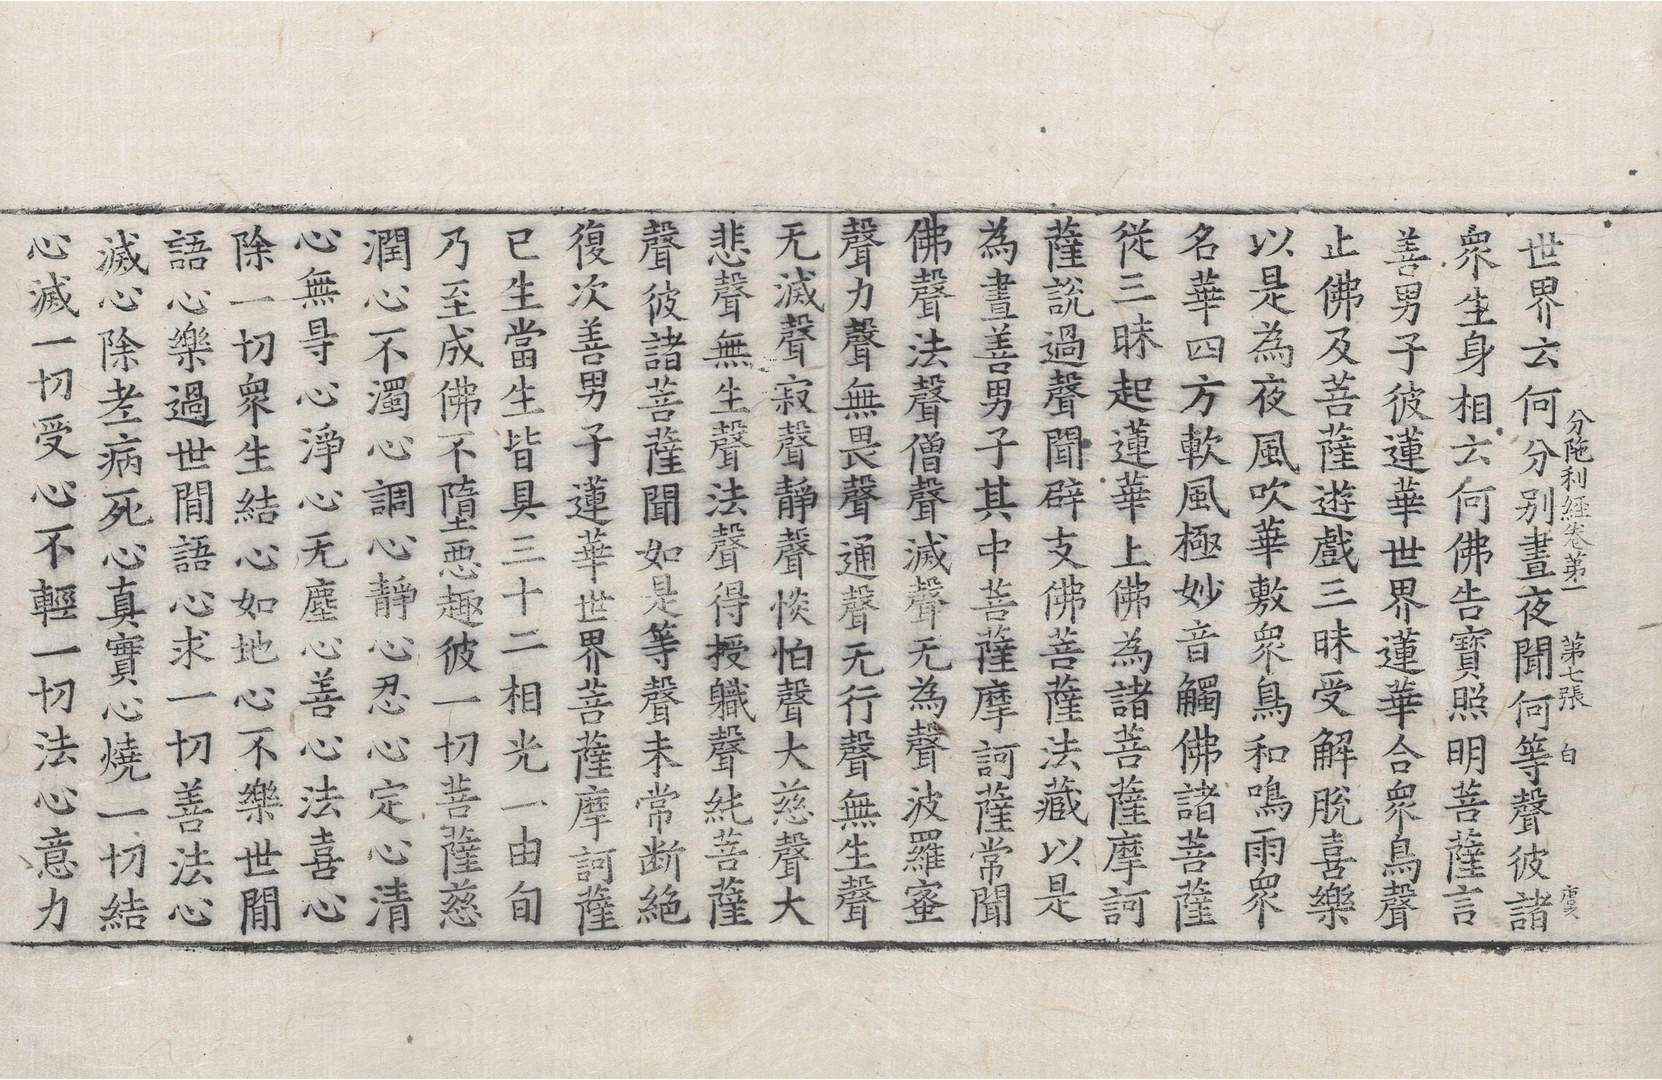 分陁利經卷第一 第七張 白 虞
世界云何分別晝夜聞何等聲彼諸
衆生身相云何佛告寶照明菩薩言
善男子彼蓮華世界蓮華合衆鳥聲
止佛及菩薩遊戲三昧受解脫喜樂
以是為夜風吹華敷衆鳥和鳴雨衆
名華四方軟風極妙音觸佛諸菩薩
從三昧起蓮華上佛為諸菩薩摩訶
薩說過聲聞辟支佛菩薩法藏以是
為晝善男子其中菩薩摩訶薩常聞
佛聲法聲僧聲滅聲无為聲波羅蜜
聲力聲無畏聲通聲无行聲無生聲
无滅聲寂聲靜聲惔怕聲大慈聲大
悲聲無生聲法聲得授軄聲純菩薩
聲彼諸菩薩聞如是等聲未常断絕
復次善男子蓮華世界菩薩摩訶薩
已生當生皆具三十二相光一由旬
乃至成佛不墮惡趣彼一切菩薩慈
潤心不濁心調心靜心忍心定心清
心無㝵心淨心无塵心善心法喜心
除一切衆生結心如地心不樂世閒
語心樂過世閒語心求一切善法心
滅心除老病死心真實心燒一切結
心滅一切受心不輕一切法心意力